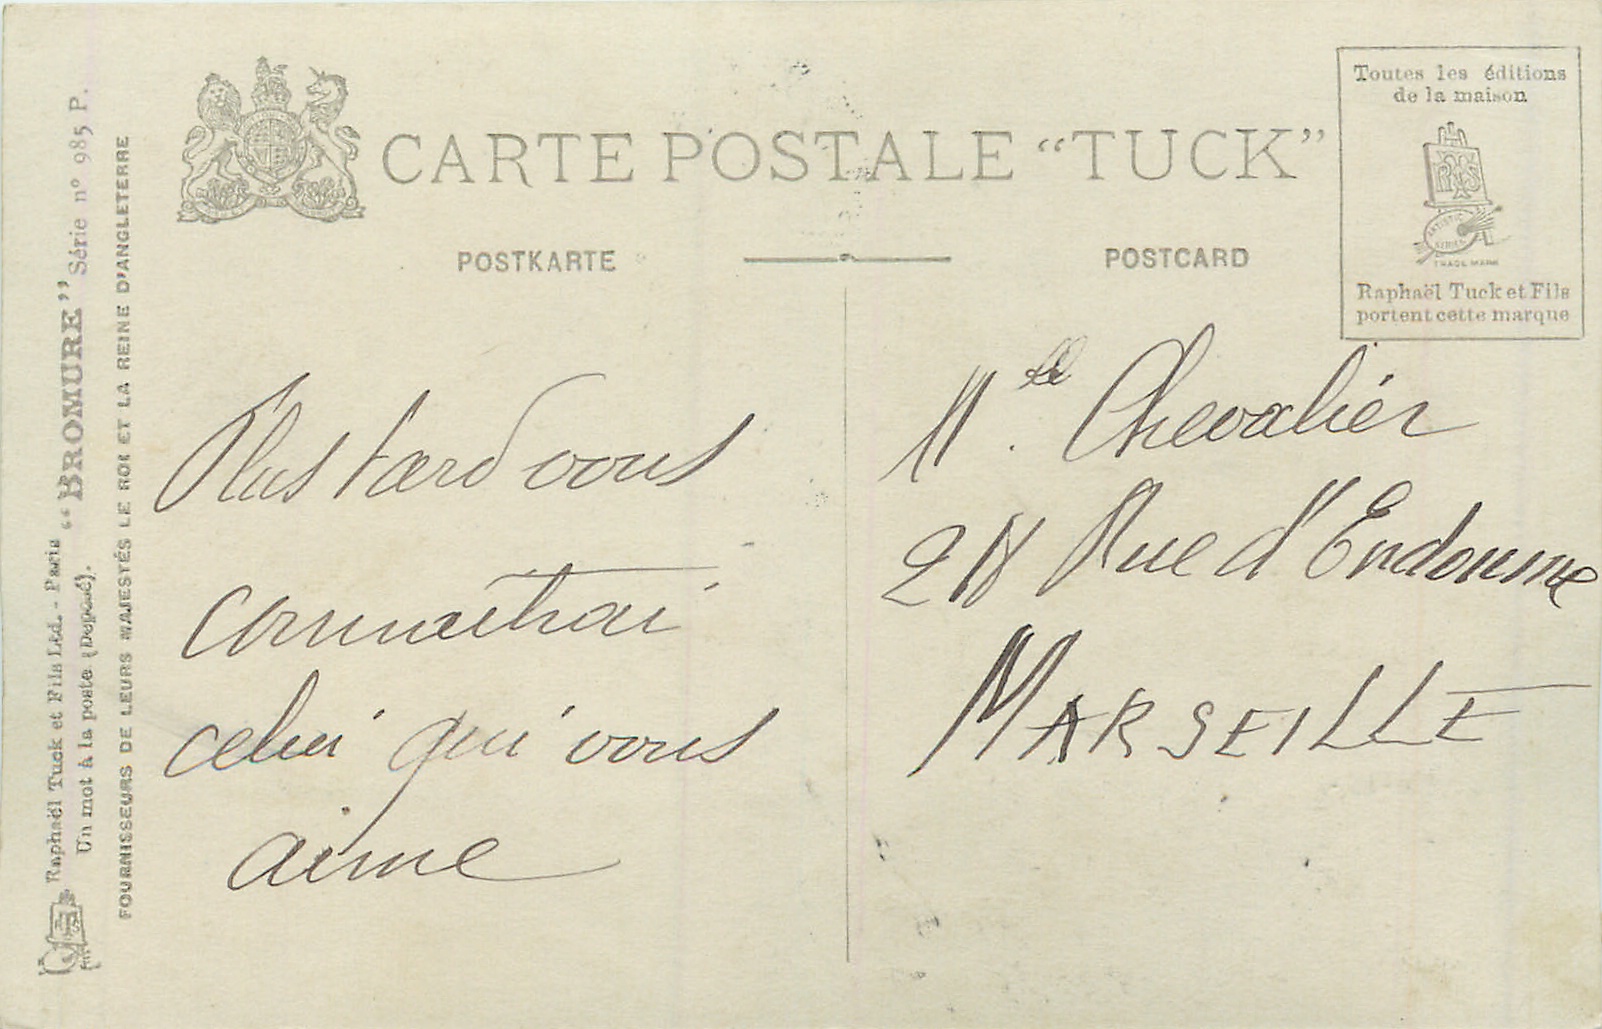 CARTE POSTALE “TUCK”
POSTKARTE
POSTCARD
Toutes les éditions
de la maison
ARTISTIC
SERIES
TRADE MARK
Raphaël Tuck et Fils
portent cette marque
Raphaël Tuck et Fils Ltd. - Paris “BROMURE” Série nº 985 P.
Un mot à la poste (Déposé).
FOURNISSEURS DE LEURS MAJESTÉS LE ROI ET LA REINE D'ANGLETERRE
Plus tard vous
connaitrai
celui qui vous
aime
Mlle Chevalier
218 Rue d'Endoume
MARSEILLE